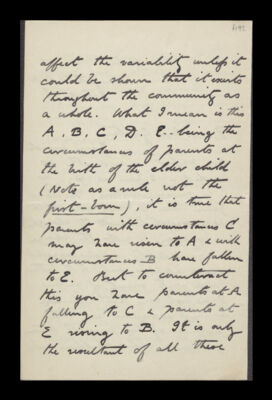 affect the variability unless it
could be shown that it exists
throughout the community as
a whole. What I mean is this
A, B, C, D, E.. being the
circumstances of parents at
the birth of the elder child
(Note as a rule not the
first-born), it is true that
parents with circumstances C
may have risen to A & with
circumstances B have fallen
to E. But to counteract
this you have parents at A
falling to C & parents at
E rising to B. It is only
the resultant of all these